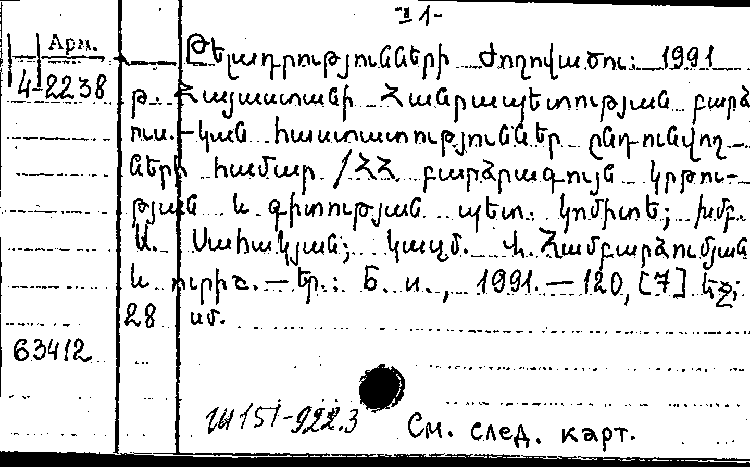 -1-
Арм.
4-2238
Թելադրությունների ժողովածու: 1991
թ. Հայաստանի Հանրապետության բարձ
ուս.-կան հաստատություններ ընդունվող-
ների համար /ՀՀ բարձրագույն կրթու-
թյան և գիտության պետ. կոմիտե; խմբ.
Ա. Սահակյան; կազմ. Վ. Համբարձումյան
և ուրիշ. — Եր.: Б. и., 1991. — 120, [7] էջ;
28 սմ.
63412
Ш151-922.3
См. след. карт.